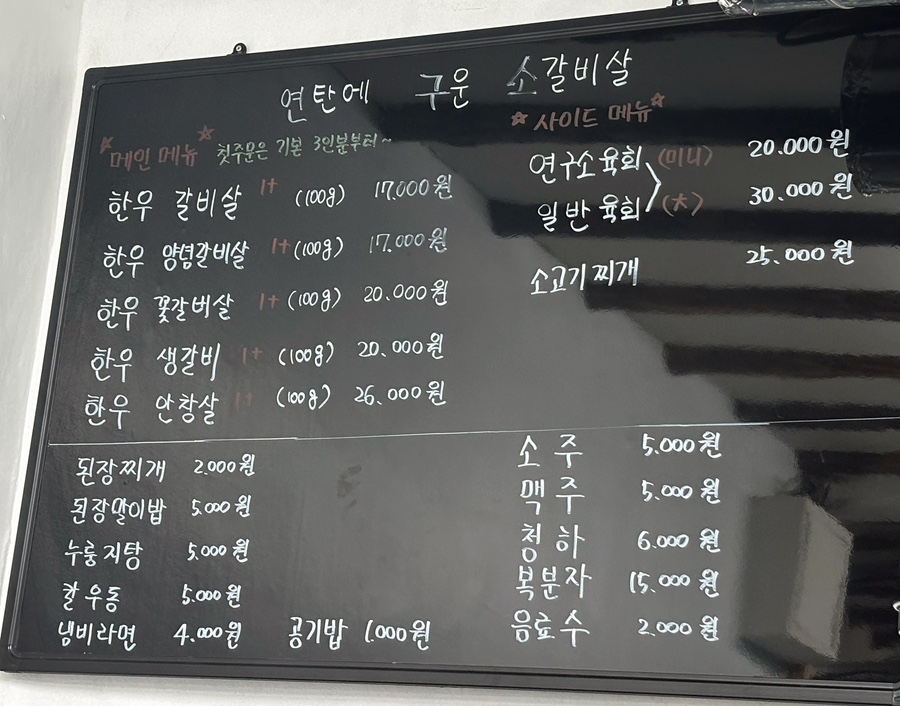 연탄에 구운 소갈비살
메인 메뉴 첫주문은 기본 3인분부터~
한우 갈비살 1+ (100g) 17.000원
한우 양념갈비살 1+ (100g) 17.000원
한우 꽃갈비살 1+ (100g) 20.000원
한우 생갈비 1+ (100g) 20.000원
한우 안창살 1+ (100g) 26.000원
사이드 메뉴
연구소육회 (미니) 20.000원
일반육회 (大) 30.000원
소고기찌개 25.000원
된장찌개 2.000원
된장말이밥 5.000원
누룽지탕 5.000원
칼우동 5.000원
냄비라면 4.000원 공기밥 1.000원
소주 5.000원
맥주 5.000원
청하 6.000원
복분자 15.000원
음료수 2.000원